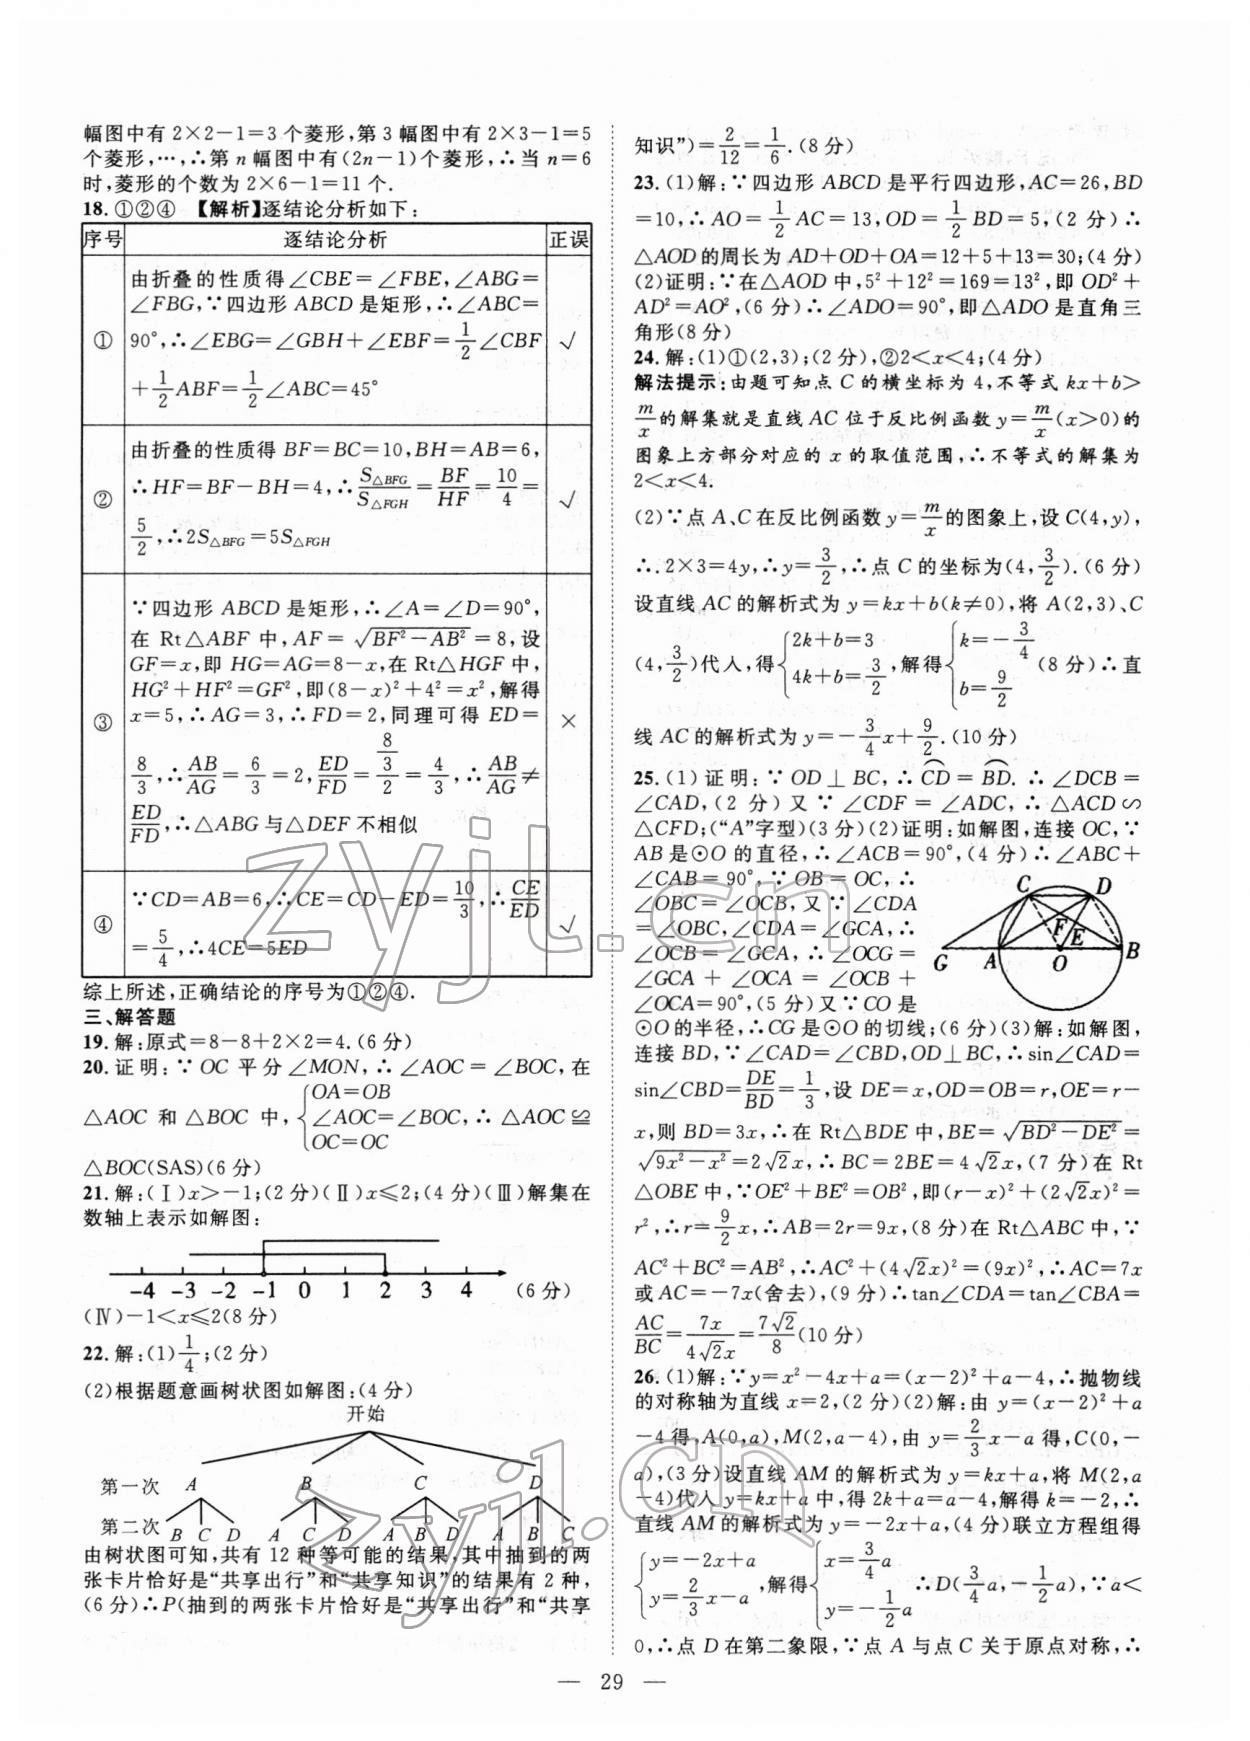 幅图中有 2×2-1=3 个菱形,第 3 幅图中有 2×3-1=5
个菱形,…,∴第 n 幅图中有(2n-1)个菱形,∴当 n=6
时,菱形的个数为 2×6-1=11 个.
18.①②④ 【解析】逐结论分析如下:
序号 逐结论分析 正误
由折叠的性质得∠CBE=∠FBE,∠ABG=
∠FBG,∵四边形 ABCD 是矩形,∴∠ABC=
① 90°,∴∠EBG=∠GBH+∠EBF=1/2∠CBF √
+1/2ABF=1/2∠ABC=45°
由折叠的性质得 BF=BC=10,BH=AB=6,
② ∴HF=BF-BH=4,∴S△BFG/S△FGH=BF/HF=10/4= √
5/2,∴2S△BFG=5S△FGH
∵四边形 ABCD 是矩形,∴∠A=∠D=90°,
在 Rt△ABF 中,AF=√(BF²-AB²)=8,设
GF=x,即 HG=AG=8-x,在 Rt△HGF 中,
HG²+HF²=GF²,即(8-x)²+4²=x²,解得
③ x=5,∴AG=3,∴FD=2,同理可得 ED= ×
8/3,∴AB/AG=6/3=2,ED/FD=(8/3)/2=4/3,∴AB/AG≠
ED/FD,∴△ABG 与△DEF 不相似
④ ∵CD=AB=6,∴CE=CD-ED=10/3,∴CE/ED √
=5/4,∴4CE=5ED
综上所述,正确结论的序号为①②④.
三、解答题
19.解:原式=8-8+2×2=4.(6 分)
20.证明:∵OC 平分∠MON,∴∠AOC=∠BOC,在
△AOC 和△BOC 中,{OA=OB
∠AOC=∠BOC,∴△AOC≌
OC=OC
△BOC(SAS)(6 分)
21.解:(Ⅰ)x>-1;(2 分)(Ⅱ)x≤2;(4 分)(Ⅲ)解集在
数轴上表示如解图:
-4 -3 -2 -1 0 1 2 3 4 (6 分)
(Ⅳ)-1<x≤2(8 分)
22.解:(1)1/4;(2 分)
(2)根据题意画树状图如解图:(4 分)
开始
第一次 A B C D
第二次 B C D A C D A B D A B C
由树状图可知,共有 12 种等可能的结果,其中抽到的两
张卡片恰好是“共享出行”和“共享知识”的结果有 2 种,
(6 分)∴P(抽到的两张卡片恰好是“共享出行”和“共享
知识”)=2/12=1/6.(8 分)
23.(1)解:∵四边形 ABCD 是平行四边形,AC=26,BD
=10,∴AO=1/2AC=13,OD=1/2BD=5,(2 分)∴
△AOD 的周长为 AD+OD+OA=12+5+13=30;(4 分)
(2)证明:∵在△AOD 中,5²+12²=169=13²,即 OD²+
AD²=AO²,(6 分)∴∠ADO=90°,即△ADO 是直角三
角形(8 分)
24.解:(1)①(2,3);(2 分),②2<x<4;(4 分)
解法提示:由题可知点 C 的横坐标为 4,不等式 kx+b>
m/x的解集就是直线 AC 位于反比例函数 y=m/x(x>0)的
图象上方部分对应的 x 的取值范围,∴不等式的解集为
2<x<4.
(2)∵点 A、C 在反比例函数 y=m/x的图象上,设 C(4,y),
∴.2×3=4y,∴y=3/2,∴点 C 的坐标为(4,3/2).(6 分)
设直线 AC 的解析式为 y=kx+b(k≠0),将 A(2,3)、C
(4,3/2)代人,得{2k+b=3 4k+b=3/2,解得{k=-3/4 b=9/2 (8 分)∴直
线 AC 的解析式为 y=-3/4x+9/2.(10 分)
25.(1)证明:∵OD⊥BC,∴CD⌒=BD⌒.∴∠DCB=
∠CAD,(2 分)又∵∠CDF=∠ADC,∴△ACD∽
△CFD;(“A”字型)(3 分)(2)证明:如解图,连接 OC,∵
AB 是⊙O 的直径,∴∠ACB=90°,(4 分)∴∠ABC+
∠CAB=90°,∵OB=OC,∴
∠OBC=∠OCB,又∵∠CDA
=∠OBC,∠CDA=∠GCA,∴
∠OCB=∠GCA,∴∠OCG=
∠GCA+∠OCA=∠OCB+
∠OCA=90°,(5 分)又∵CO 是
C D F E G A O B
⊙O 的半径,∴CG 是⊙O 的切线;(6 分)(3)解:如解图,
连接 BD,∵∠CAD=∠CBD,OD⊥BC,∴sin∠CAD=
sin∠CBD=DE/BD=1/3,设 DE=x,OD=OB=r,OE=r-
x,则 BD=3x,∴在 Rt△BDE 中,BE=√(BD²-DE²)=
√(9x²-x²)=2√2x,∴BC=2BE=4√2x,(7 分)在 Rt
△OBE 中,∵OE²+BE²=OB²,即(r-x)²+(2√2x)²=
r²,∴r=9/2x,∴AB=2r=9x,(8 分)在 Rt△ABC 中,∵
AC²+BC²=AB²,∴AC²+(4√2x)²=(9x)²,∴AC=7x
或 AC=-7x(舍去),(9 分)∴tan∠CDA=tan∠CBA=
AC/BC=7x/4√2x=7√2/8(10 分)
26.(1)解:∵y=x²-4x+a=(x-2)²+a-4,∴抛物线
的对称轴为直线 x=2,(2 分)(2)解:由 y=(x-2)²+a
-4 得,A(0,a),M(2,a-4),由 y=2/3x-a 得,C(0,-
a),(3 分)设直线 AM 的解析式为 y=kx+a,将 M(2,a
-4)代人 y=kx+a 中,得 2k+a=a-4,解得 k=-2,∴
直线 AM 的解析式为 y=-2x+a,(4 分)联立方程组得
{y=-2x+a y=2/3x-a,解得{x=3/4a y=-1/2a ∴D(3/4a,-1/2a),∵a<
0,∴点 D 在第二象限,∵点 A 与点 C 关于原点对称,∴
— 29 —
zyjl.cn
zyjl.cn